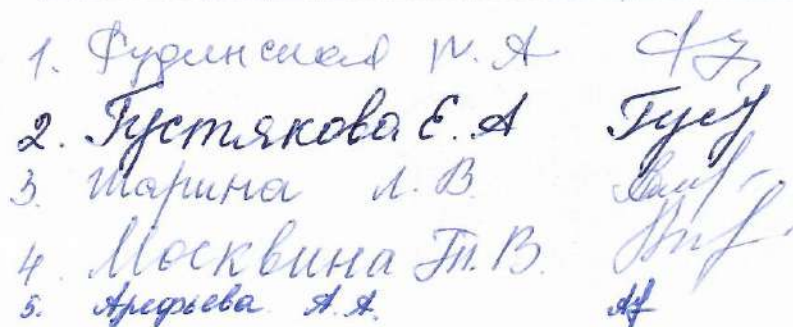 1. Рудинская И. А
2. Густякова Е. А
3. Шарина Л. В.
4. Москвина Т. В.
5. Арефьева А. А.